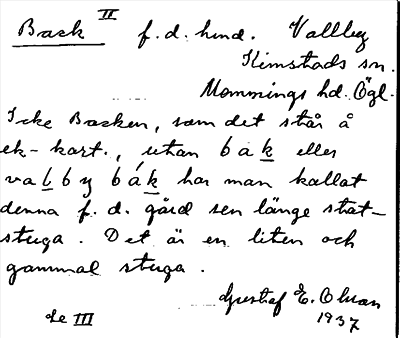 Back II f. d. hmd. Vallby
Kimstads sn.
Memmings hd. Ögl.
Icke Backen, som det står å
ek-kart., utan bak eller
valby bák har man kallat
denna f. d. gård sen länge stat-
stuga. Det är en liten och
gammal stuga.
Gustaf E. Olson
1937
Le III